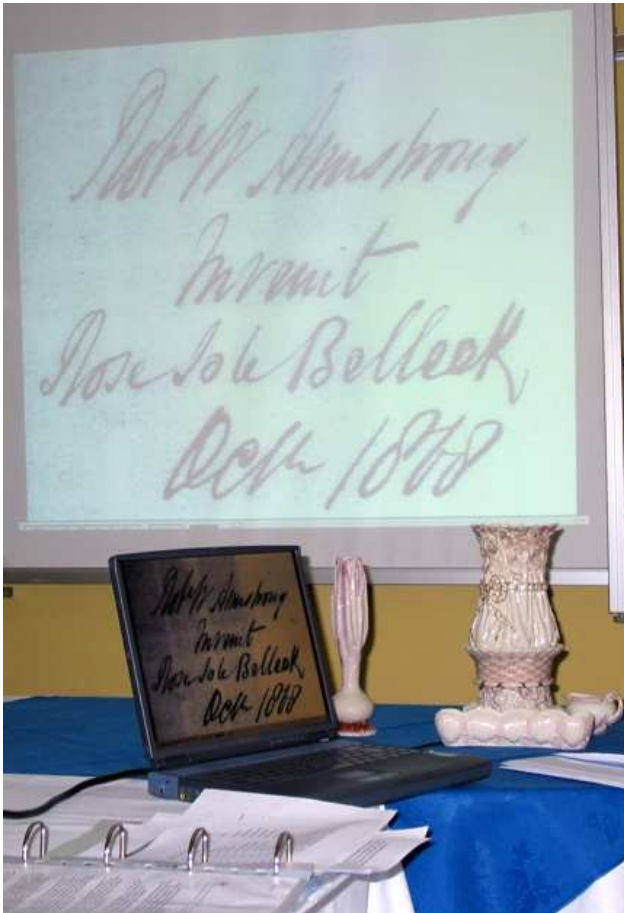 Robt W Armstrong
Invenit
Rose Isle Belleek
Octr 1868
Robt W Armstrong
Invenit
Rose Isle Belleek
Octr 1868